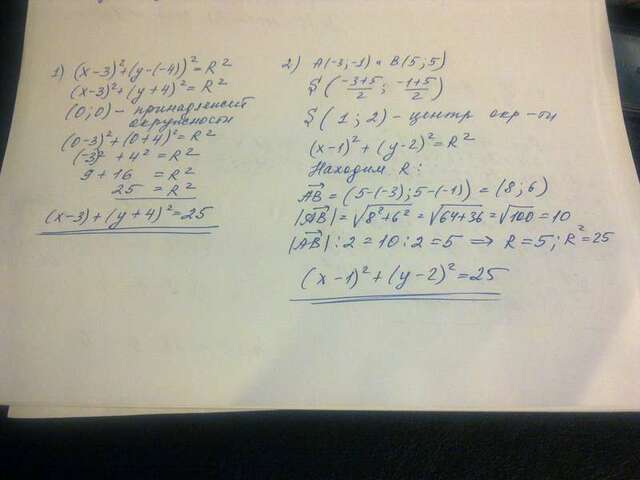 1) (x-3)²+(y-(-4))²=R²
(x-3)²+(y+4)²=R²
(0;0) - принадлежит
окружности
(0-3)²+(0+4)²=R²
(-3)²+4²=R²
9+16 =R²
25 =R²
(x-3)+(y+4)²=25
2) A(-3;-1) и B(5;5)
S(\frac{-3+5}{2}; \frac{-1+5}{2})
S(1;2) - центр окр-ти
(x-1)²+(y-2)²=R²
Находим R:
\vec{AB}=(5-(-3);5-(-1))=(8;6)
|\vec{AB}|=√(8²+6²)=√(64+36)=√100=10
|\vec{AB}|:2=10:2=5 ⇒ R=5; R²=25
(x-1)²+(y-2)²=25